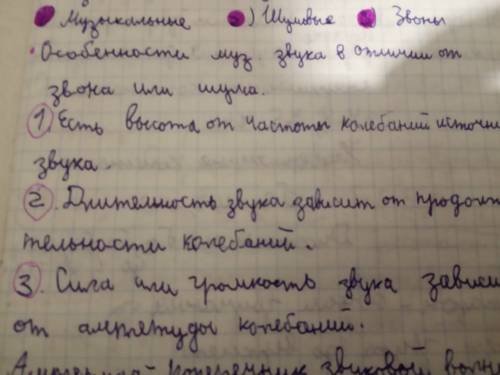 Музыкальные 2) Шумовые 3) Звоны
• Особенности муз. звука в отличии от
звона или шума.
1. Есть высота от частоты колебаний источни
звука.
2. Длительность звука зависит от продолж
тельности колебаний.
3. Сила или громкость звука зависи
от амплетуды колебаний.
поперечник звуковой волны